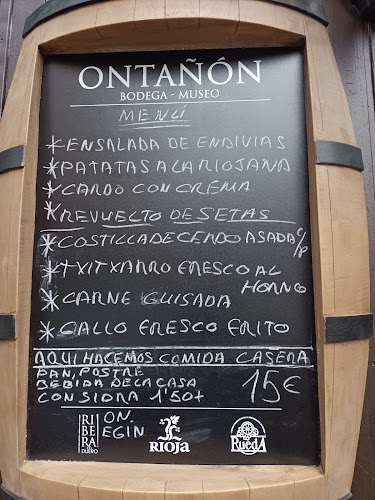 ONTAÑÓN
BODEGA - MUSEO
MENÚ
* ENSALADA DE ENDIVIAS
* PATATAS A LA RIOJANA
* CARDO CON CREMA
* REVUELTO DE SETAS
* COSTILLA DE CERDO ASADA C/P
* TXITXARRO FRESCO AL HORNO
* CARNE GUISADA
* GALLO FRESCO FRITO
AQUI HACEMOS COMIDA CASERA
PAN, POSTRE
BEBIDA DE LA CASA 15€
CON SIDRA 1'50+
ON EGIN
RIBERA DUERO
RIOJA
RUEDA